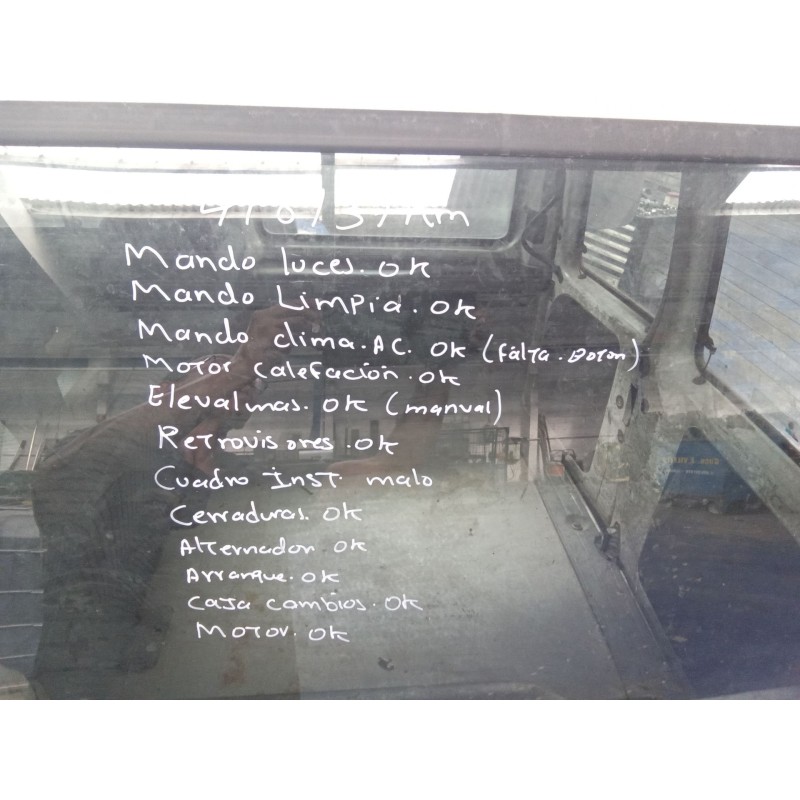 Mando luces. OK
Mando Limpia. OK
Mando clima. AC. OK (falta. Boton)
Motor calefación. OK
Elevalunas. OK (manual)
Retrovisores. OK
Cuadro Inst. malo
Cerraduras. OK
Alternador. OK
Arranque. OK
Caja cambios. OK
Motor. OK